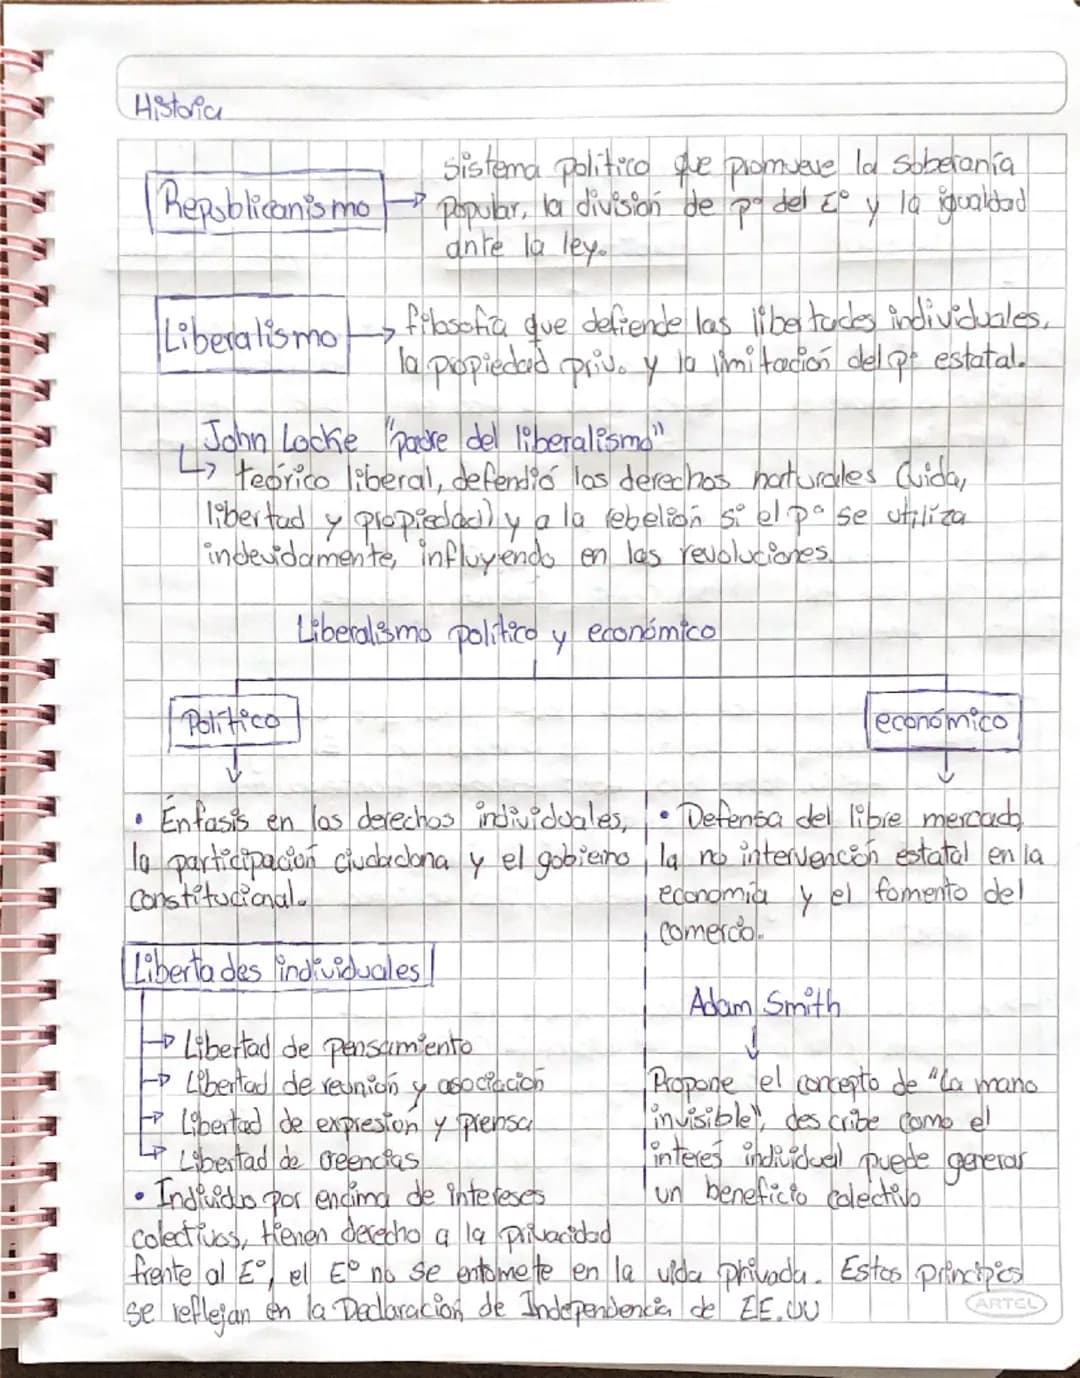 Historia
sistema político que promueve la soberanía
Republicanismo → popular, la división de pº del Eº y la igualdad
ante la ley.
Liberalismo → filosofía que defiende las libertades individuales,
la propiedad priv. y la limitación del pº estatal.
John Locke "padre del liberalismo"
↳ teórico liberal, defendió los derechos naturales (vida,
libertad y propiedad) y a la rebelión si el pº se utiliza
indevidamente, influyendo en las revoluciones.
Liberalismo político y económico
Político
• Énfasis en los derechos individuales,
la participación ciudadana y el gobierno
constitucional.
Libertades individuales
→ Libertad de pensamiento
→ Libertad de reunión y asociación
→ Libertad de expresión y prensa
→ Libertad de creencias
económico
• Defensa del libre mercado,
la no intervención estatal en la
economía y el fomento del
comercio.
Adam Smith
Propone el concepto de "la mano
invisible", describe como el
interés individual puede generar
un beneficio colectivo
• Individuo por encima de intereses
colectivos, tienen derecho a la privacidad
frente al Eº, el Eº no se entomete en la vida privada. Estos principios
se reflejan en la Declaración de Independencia de EE.UU
ARTEL